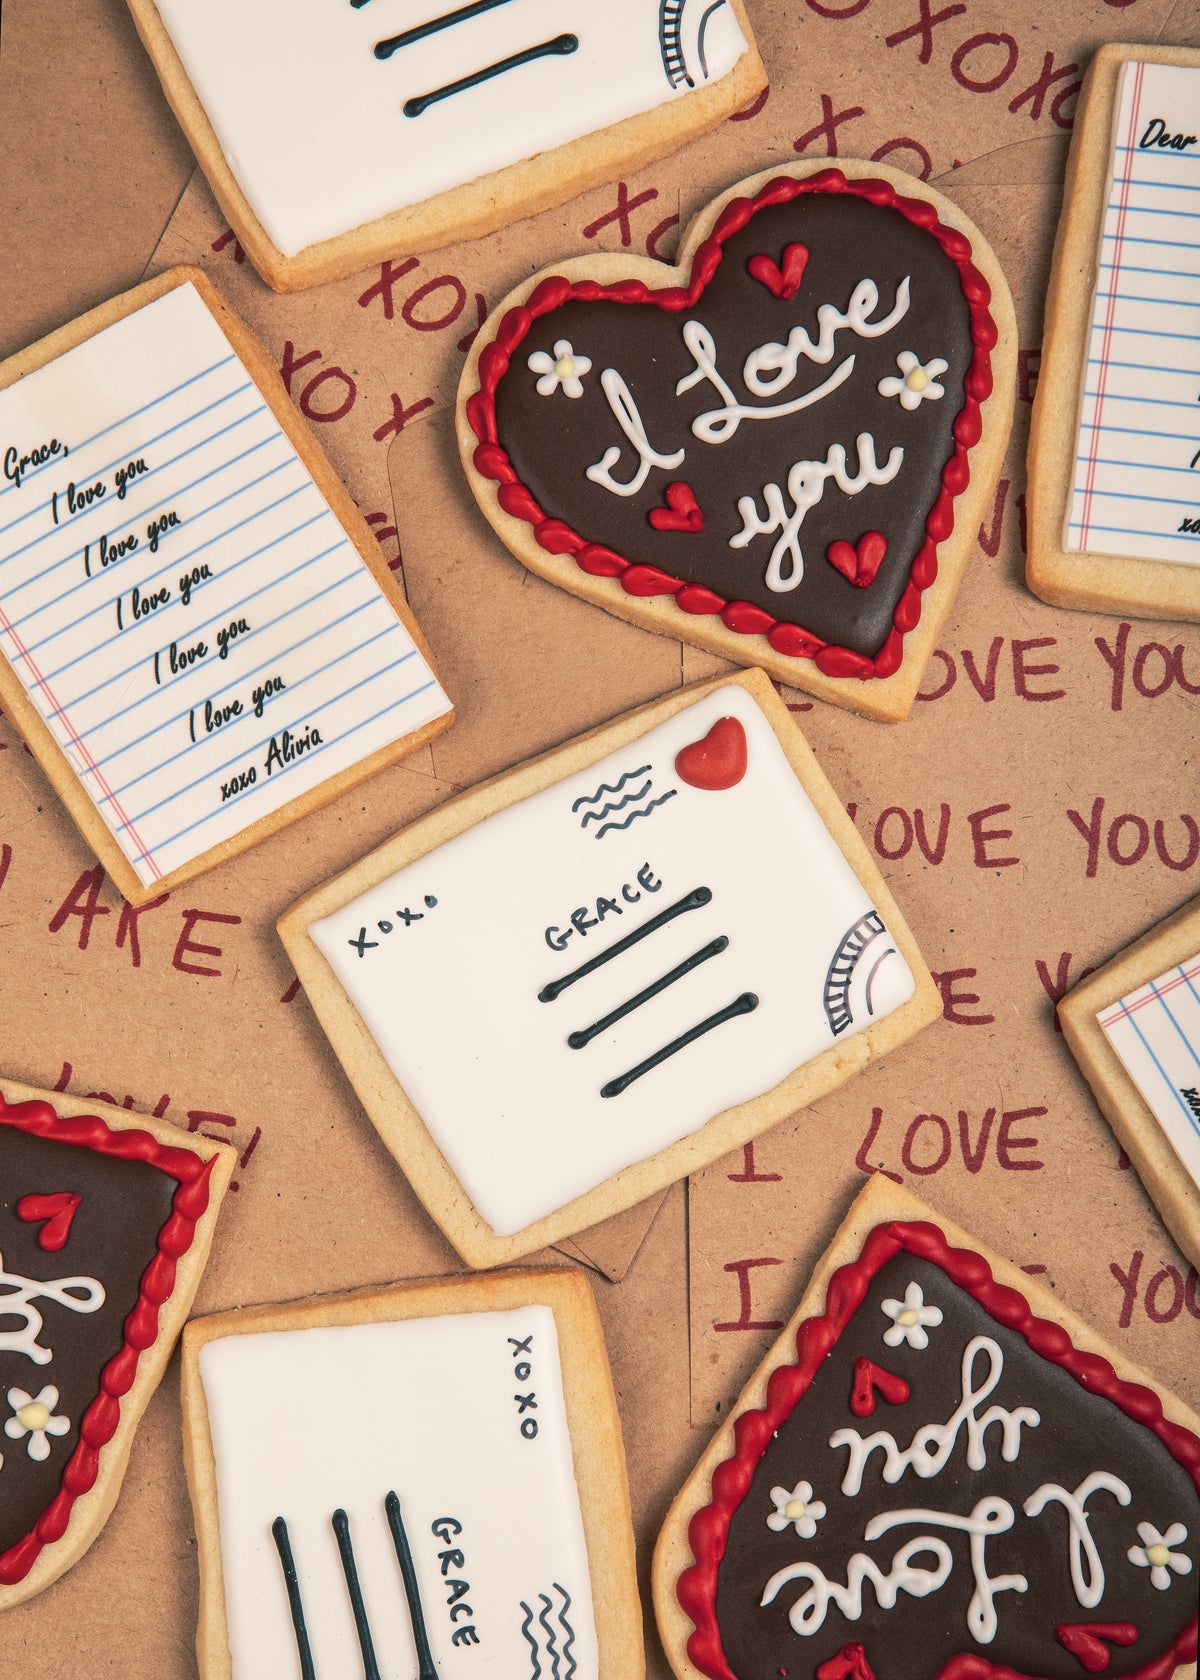 XOXO
XO
XO
XO
XOX
XO X
Dear
I Love
you
Grace,
I love you
I love you
I love you
I love you
I love you
xoxo Alivia
LOVE YOU
LOVE YOU
AKE
LOVE!
I LOVE
I
YOU
xoxo
GRACE
XOXO
GRACE
I Love
you